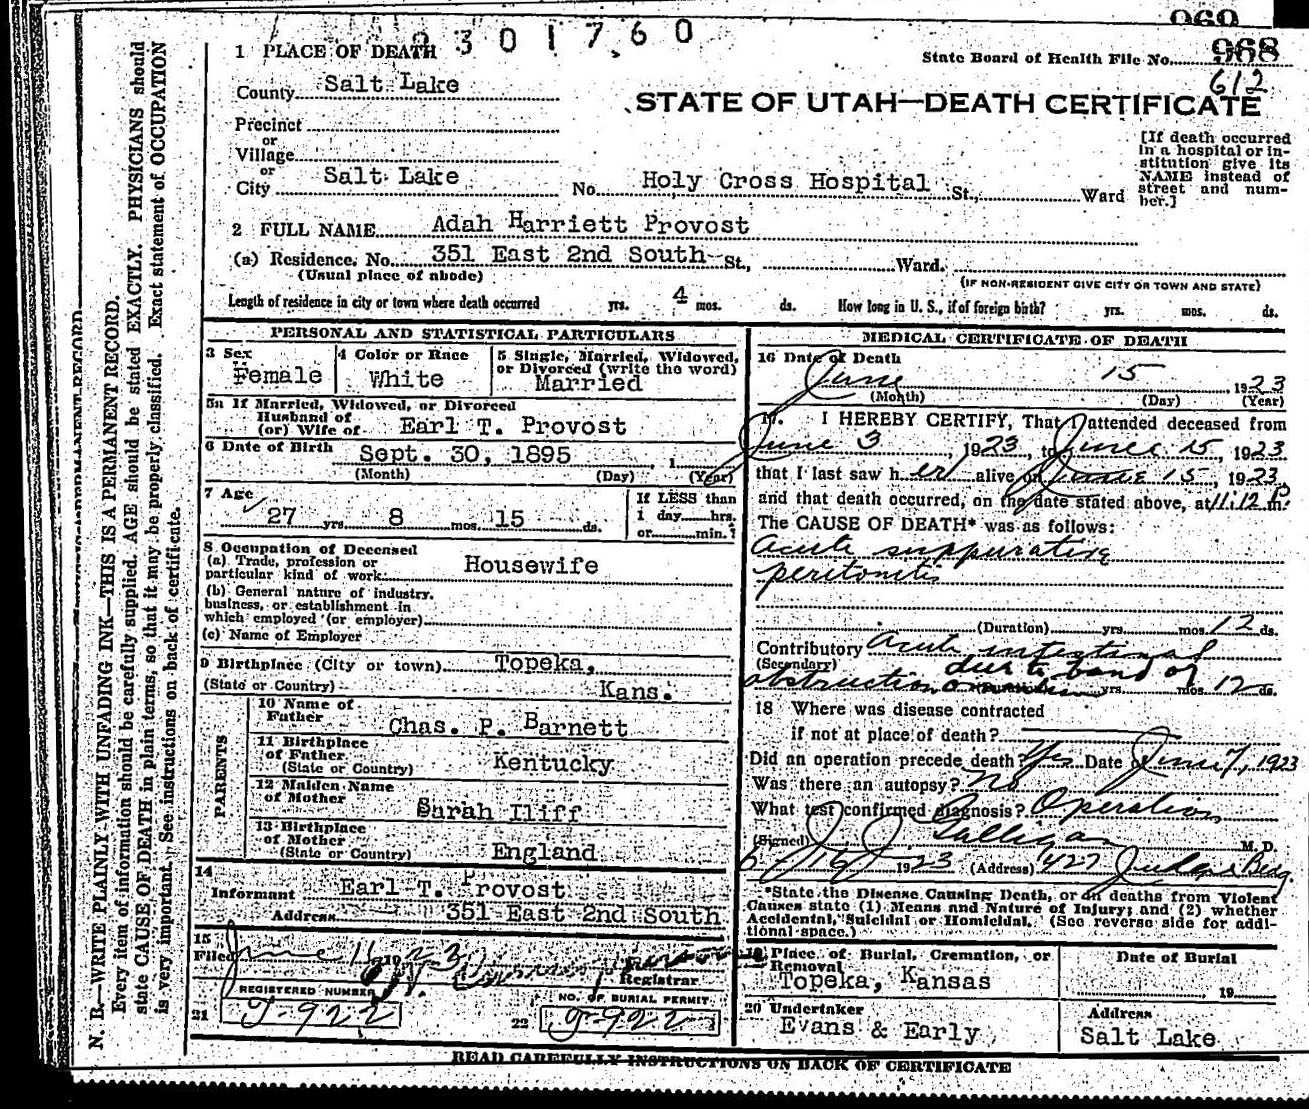 969
2301760
1 PLACE OF DEATH
State Board of Health File No. 968
612
County Salt Lake
STATE OF UTAH—DEATH CERTIFICATE
Precinct
or
Village
or
City Salt Lake No. Holy Cross Hospital St., Ward
[If death occurred
in a hospital or in-
stitution give its
NAME instead of
street and num-
ber.]
2 FULL NAME Adah Harriett Provost
(a) Residence. No. 351 East 2nd South St., Ward.
(Usual place of abode)
(IF NON-RESIDENT GIVE CITY OR TOWN AND STATE)
Length of residence in city or town where death occurred yrs. 4 mos. ds. How long in U. S., if of foreign birth? yrs. mos. ds.
PERSONAL AND STATISTICAL PARTICULARS
3 Sex
Female
4 Color or Race
White
5 Single, Married, Widowed,
or Divorced (write the word)
Married
5a If Married, Widowed, or Divorced
Husband of
(or) Wife of Earl T. Provost
6 Date of Birth Sept. 30, 1895 1
(Month) (Day) (Year)
7 Age
27 yrs. 8 mos. 15 ds.
If LESS than
1 day hrs.
or min.?
8 Occupation of Deceased
(a) Trade, profession or
particular kind of work Housewife
(b) General nature of industry,
business, or establishment in
which employed (or employer)
(c) Name of Employer
9 Birthplace (City or town) Topeka,
(State or Country) Kans.
PARENTS
10 Name of
Father Chas. P. Barnett
11 Birthplace
of Father
(State or Country) Kentucky
12 Maiden Name
of Mother Sarah Iliff
13 Birthplace
of Mother
(State or Country) England
14
Informant Earl T. Provost
Address 351 East 2nd South
15
Filed June 23
Registrar
REGISTERED NUMBER
21 J-922
NO. OF BURIAL PERMIT
22 J-922
MEDICAL CERTIFICATE OF DEATH
16 Date of Death
June 15 1923
(Month) (Day) (Year)
17. I HEREBY CERTIFY, That I attended deceased from
June 3, 1923, to June 15, 1923
that I last saw her alive on June 15, 1923
and that death occurred, on the date stated above, at 11:12 P.m.
The CAUSE OF DEATH* was as follows:
Acute suppurative
peritonitis
(Duration) yrs. mos. 12 ds.
Contributory Acute intestinal
(Secondary) due to band of
obstruction yrs. mos. 12 ds.
18 Where was disease contracted
if not at place of death?
Did an operation precede death? Yes Date of June 7, 1923
Was there an autopsy? No
What test confirmed diagnosis? Operation
(Signed) J. J. Galligan M. D.
6/16 1923 (Address) 427 Judge Bldg.
*State the Disease Causing Death, or in deaths from Violent
Causes state (1) Means and Nature of Injury; and (2) whether
Accidental, Suicidal or Homicidal. (See reverse side for addi-
tional space.)
19 Place of Burial, Cremation, or
Removal
Topeka, Kansas
Date of Burial
19
20 Undertaker
Evans & Early
Address
Salt Lake
READ CAREFULLY INSTRUCTIONS ON BACK OF CERTIFICATE
N. B.—WRITE PLAINLY WITH UNFADING INK—THIS IS A PERMANENT RECORD.
Every item of information should be carefully supplied. AGE should be stated EXACTLY. PHYSICIANS should
state CAUSE OF DEATH in plain terms, so that it may be properly classified. Exact statement of OCCUPATION
is very important. See instructions on back of certificate.